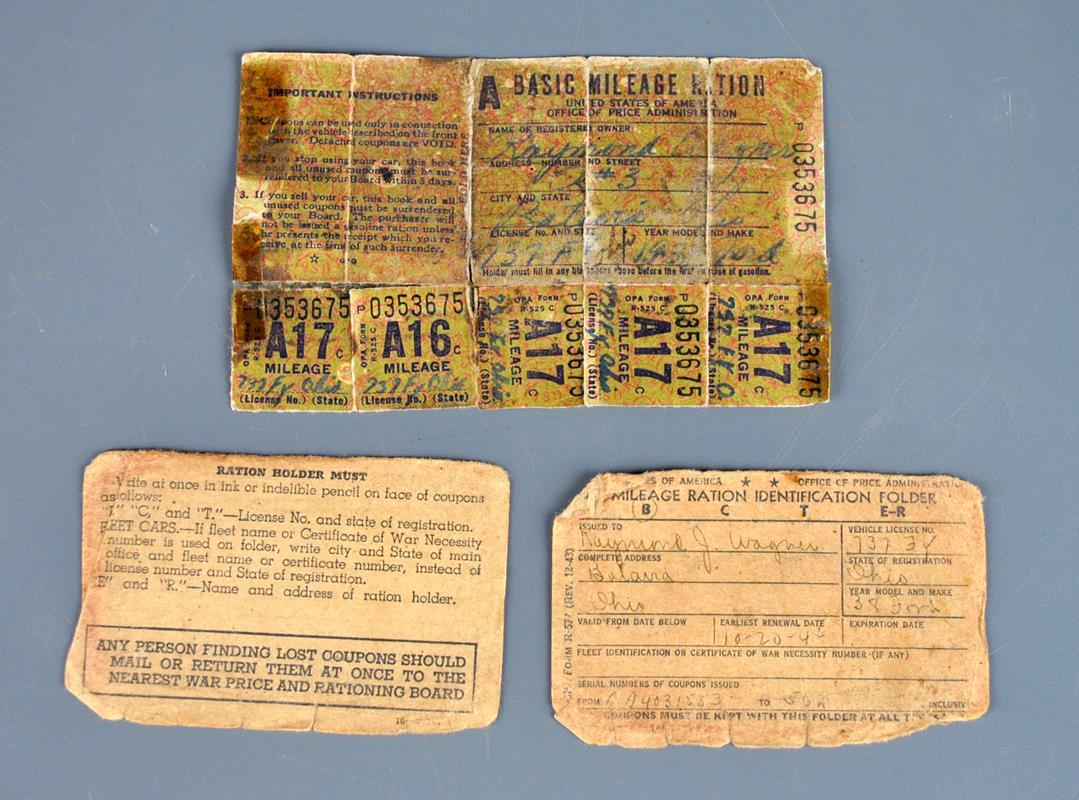 IMPORTANT INSTRUCTIONS
1. Coupons can be used only in connection
with the vehicle described on the front
cover. Detached coupons are VOID.
2. If you stop using your car, this book
and all unused coupons must be sur-
rendered to your Board within 5 days.
3. If you sell your car, this book and all
unused coupons must be surrendered
to your Board. The purchaser will
not be issued a gasoline ration unless
he presents the receipt which you re-
ceive at the time of such surrender.
FOLD HERE
A BASIC MILEAGE RATION
UNITED STATES OF AMERICA
OFFICE OF PRICE ADMINISTRATION
NAME OF REGISTERED OWNER
Raymond Wagner
ADDRESS—NUMBER AND STREET
#3
CITY AND STATE
LICENSE NO. AND STATE YEAR MODEL AND MAKE
737 Ford
Holder must fill in any blank spaces above before the first purchase of gasoline.
P 0353675
0353675
OPA FORM R-525 C
A17 C
MILEAGE
737 Fy Ohio
(License No.) (State)
P 0353675
OPA FORM R-525 C
A16 C
MILEAGE
737 Fy Ohio
(License No.) (State)
P 035367
OPA FORM R-525 C
A17 C
MILEAGE
(License No.) (State)
P 0353675
OPA FORM R-525 C
A17 C
MILEAGE
737 Fy Ohio
(License No.) (State)
P 0353675
OPA FORM R-525 C
A17 C
MILEAGE
737 Fy O.
(License No.) (State)
RATION HOLDER MUST
Write at once in ink or indelible pencil on face of coupons
as follows:
"C," and "T."—License No. and state of registration.
FLEET CARS.—If fleet name or Certificate of War Necessity
number is used on folder, write city and State of main
office and fleet name or certificate number, instead of
license number and State of registration.
E" and "R."—Name and address of ration holder.
ANY PERSON FINDING LOST COUPONS SHOULD
MAIL OR RETURN THEM AT ONCE TO THE
NEAREST WAR PRICE AND RATIONING BOARD
16
ES OF AMERICA ★ ★ OFFICE OF PRICE ADMINISTRATIO
MILEAGE RATION IDENTIFICATION FOLDER
B C T E-R
ISSUED TO
Raymond J. Wagner
VEHICLE LICENSE NO.
737
COMPLETE ADDRESS
Batavia
STATE OF REGISTRATION
Ohio
Ohio
YEAR MODEL AND MAKE
38 Ford
VALID FROM DATE BELOW EARLIEST RENEWAL DATE EXPIRATION DATE
10-20-4
FLEET IDENTIFICATION OR CERTIFICATE OF WAR NECESSITY NUMBER (IF ANY)
SERIAL NUMBERS OF COUPONS ISSUED
FROM: TO 562 INCLUSIV
COUPONS MUST BE KEPT WITH THIS FOLDER AT ALL
FORM R-577 (REV. 12-43)